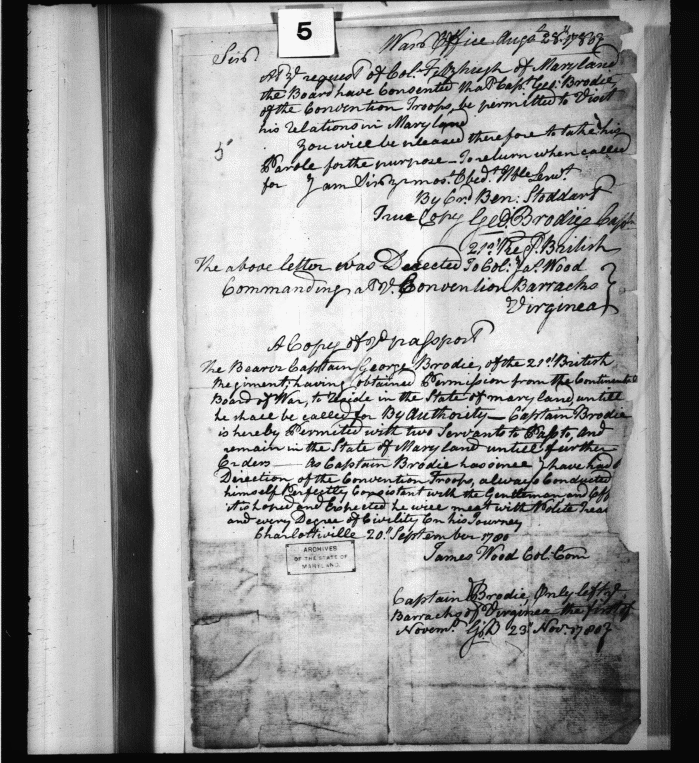 5
War Office Augt. 28th 1780
Sir
At ye request of Col. Fitzhugh of Maryland
the Board have Consented that Capt. Geo: Brodie
of the Convention Troops, be permitted to Visit
his relations in Maryland
5
You will be pleased therefore to take his
Parole for the purpose — to return when called
for I am Sir yr most Obedt. Hble Servt
By Ord. Ben: Stoddart
True Copy Geo: Brodie Captn
21st Regt. British
The above letter was Directed To Col: Jas. Wood
Commanding at ye. Convention Barracks
Virginea
A Copy of ye passport
The Bearer Captain George Brodie, of the 21st British
Regiment; having obtained Permission from the Continental
Board of War, to Reside in the State of maryland, untill
he shall be called for By Authority — Captain Brodie
is hereby Permited with two Servants to Pass to, and
remain in the State of Maryland untill further
Orders — As Captain Brodie has since I have had
Direction of the Convention Troops, always Conducted
himself Perfectly Consistant with the Gentleman and Off
it is hoped and Expected he will meet with Polite Treat
and every Degree of Civility On his Journey
Charlottiville 20th September 1780
James Wood Col. Com
ARCHIVES
OF THE STATE OF
MARYLAND.
Captain Brodie, Only left ye
Barracks of Virginea the first of
Novemr. GB 23d Novr. 1780